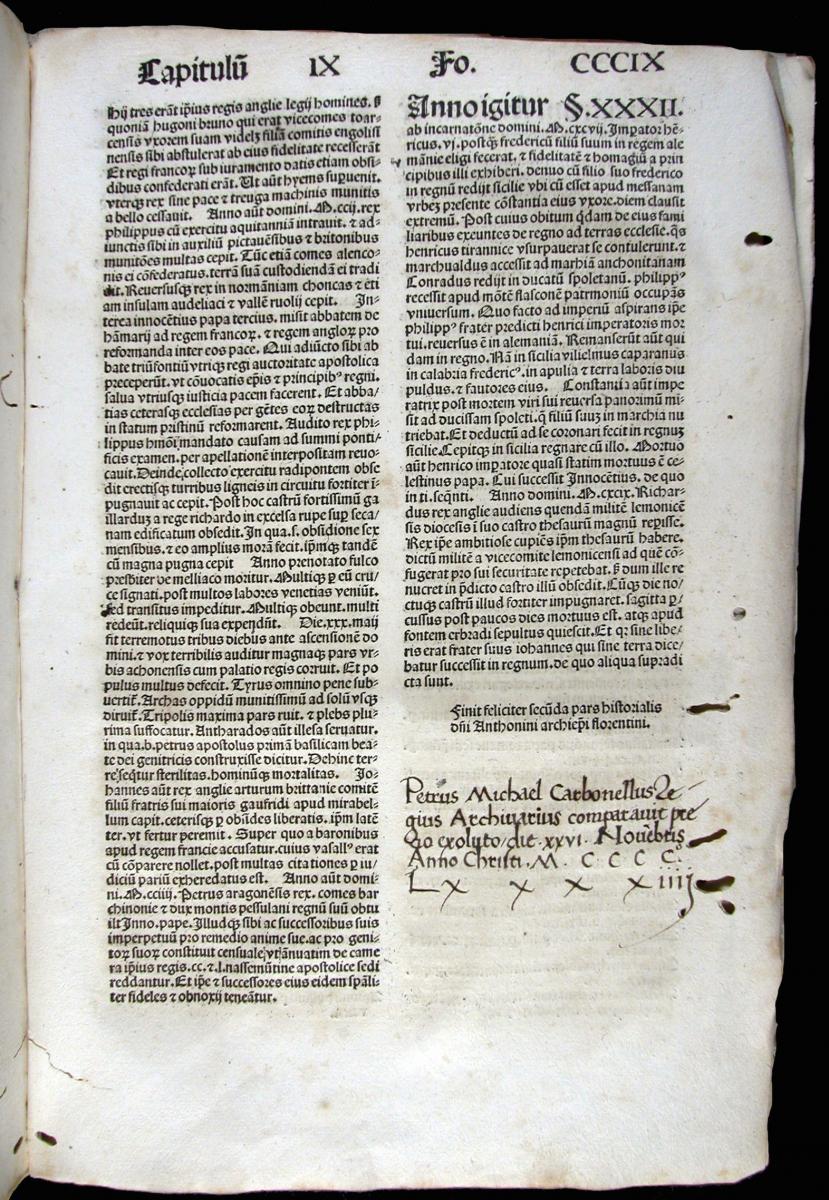 Capitulū IX Fo. CCCIX
Hij tres erāt ip̄ius regis anglie legij homines. ꝙ
quoniā hugoni bruno qui erat vicecomes toar-
censis vxorem suam videlꝫ filiā comitis engolisi
nensis sibi abstulerat ab eius fidelitate recesserāt
Et regi francoꝝ sub iuramento datis etiam obsi-
dibus confederati erāt. Ut aūt hyems supuenit.
vterqꝫ rex sine pace ⁊ treuga machinis munitis
a bello cessauit. Anno aūt domini. M.ccij. rex
philippus cū exercitu aquitanniā intrauit. ⁊ ad-
iunctis sibi in auxiliū pictauēsibus ⁊ britonibus
munitōes multas cepit. Tūc etiā comes alenco-
nis ei cōfederatus. terrā suā custodiendā ei tradi
dit. Reuersusqꝫ rex in normāniam choncas ⁊ eti
am insulam audeliaci ⁊ vallē ruolij cepit. In-
terea innocētius papa tercius. misit abbatem de
hāmarij ad regem francoꝝ. ⁊ regem angloꝝ pro
reformanda inter eos pace. Qui adiūcto sibi ab
bate triūfontiū vtriqꝫ regi auctoritate apostolica
preceperūt. vt cōuocatis ep̄is ⁊ principibꝰ regni.
salua vtriusqꝫ iusticia pacem facerent. Et abba/
tias ceterasqꝫ ecclesias per gētes eoꝝ destructas
in statum pristinū reformarent. Audito rex phi-
lippus hmōi mandato causam ad summi ponti/
ficis examen. per apellationē interpositam reuo-
cauit. Deinde collecto exercitu radipontem obse
dit erectisqꝫ turribus ligneis in circuitu fortiter ī-
pugnauit ac cepit. Post hoc castrū fortissimū ga
illarduꝫ a rege richardo in excelsa rupe suꝑ seca/
nam edificatum obsedit. In qua.s. obsidione sex
mensibus. ⁊ eo amplius morā fecit. ip̄mqꝫ tandē
cū magna pugna cepit Anno prenotato fulco
presbiter de melliaco moritur. Multiqꝫ ꝑ eū cru/
ce signati. post multos labores venetias veniūt.
sed transitus impeditur. Multiqꝫ obeunt. multi
redeūt. reliquiqꝫ sua expendūt. Die.xxx.maij
fit terremotus tribus diebus ante ascensionē do
mini. ⁊ vox terribilis auditur magnaqꝫ pars vr-
bis achonensis cum palatio regis corruit. Et po
pulus multus defecit. Tyrus omnino pene sub-
uertit̄. Archas oppidū munitissimū ad solū vsqꝫ
diruit̄. Tripolis maxima pars ruit. ⁊ plebs plu-
rima suffocatur. Antharados aūt illesa seruatur.
in qua.b.petrus apostolus primā basilicam bea-
te dei genitricis construxisse dicitur. Dehine ter-
re seqt̄ur sterilitas. hominūqꝫ mortalitas. Jo-
hannes aūt rex anglie arturum brittanie comitē
filiū fratris sui maioris gaufridi apud mirabel-
lum capit. ceterisqꝫ ꝑ obsides liberatis. ip̄m latē
ter. vt fertur peremit. Super quo a baronibus
apud regem francie accusatur. cuius vasall’ erat
cū cōparere nollet. post multas citationes ꝑ iu/
diciū pariū exheredatus est. Anno aūt domi-
ni. M.cciiij. Petrus aragonēsis rex. comes bar
chinonie ⁊ dux montis pessulani regnū suū obtu
ilt Inno. pape. Illudqꝫ sibi ac successoribus suis
imperpetuū pro remedio anime sue. ac pro geni-
toꝝ suoꝝ constituit censuale vt ānuatim de came
ra ip̄ius regis. cc. ⁊ .l. nassemūtine apostolice sedi
reddantur. Et ip̄e ⁊ successores eius eidem sp̄ali-
ter fideles ⁊ obnoxij teneātur.
Anno igitur §.XXXII.
ab incarnatōne domini. M.cxcvij. Imꝑator hē-
ricus. vj. postqꝫ fredericū filiū suum in regem ale
māniē eligi fecerat. ⁊ fidelitatē ⁊ homagiū a prin
cipibus illi exhiberi. denuo cū filio suo frederico
in regnū redijt sicilie vbi cū esset apud messanam
vrbeꝫ presente cōstantia eius vxore. diem clausit
extremū. Post cuius obitum qdam de eius fami
liaribus exeuntes de regno ad terras ecclesie. qs
henricus tirannice vsurpauerat se contulerunt. ⁊
marchualdus accessit ad marhiā anchonitanam
Conradus redijt in ducatū spoletanū. philippꝰ
recessit apud mōtē flasconē patrmoniū occupās
vniuersum. Quo facto ad imperiū aspirans ip̄e
philippꝰ frater predicti henrici imperatoris mor
tui. reuersus ē in alemaniā. Remanserūt aūt qui
dam in regno. Nā in sicilia vilielmus caparanus
in calabria fredericꝰ. in apulia ⁊ terra laboris diu
puldus. ⁊ fautores eius. Constantia aūt impe
ratrix post mortem viri sui reuersa panorimū mi-
sit ad ducissam spoleti. q̄ filiū suuꝫ in marchia nu
triebat. Et deductū ad se coronari fecit in regnuꝫ
sicilie. Cepitqꝫ in sicilia regnare cū illo. Mortuo
aūt henrico imꝑatore quasi statim mortuus ē ce-
lestinus papa. Cui successit Innocētius. de quo
in ti. seqn̄ti. Anno domini. M.cxcix. Richar-
dus rex anglie audiens quendā militē lemonicē
sis diocesis ī suo castro thesaurū magnū reꝑisse.
Rex ip̄e ambitiose cupiēs ip̄m thesaurū habere.
dictū militē a vicecomite lemonicensi ad quē cō-
fugerat pro sui securitate repetebat. ꝙ dum ille re
nueret in p̄dicto castro illū obsedit. Cūqꝫ die no/
ctuqꝫ castrū illud fortiter impugnaret. sagitta ꝑ/
cussus post paucos dies mortuus est. atqꝫ apud
fontem erbradi sepultus quiescit. Et qꝛ sine libe-
ris erat frater suus iohannes qui sine terra dice/
batur successit in regnum. de quo aliqua supradi
cta sunt.
Finit feliciter secūda pars historialis
dn̄i Anthonini archiep̄i florentini.
Petrus Michael Carbonellus Re-
gius Archiuarius comparauit pre
cio exoluto die xxvi Nouēbris
Anno Christi. M. C C C C.
L x x x xiiij